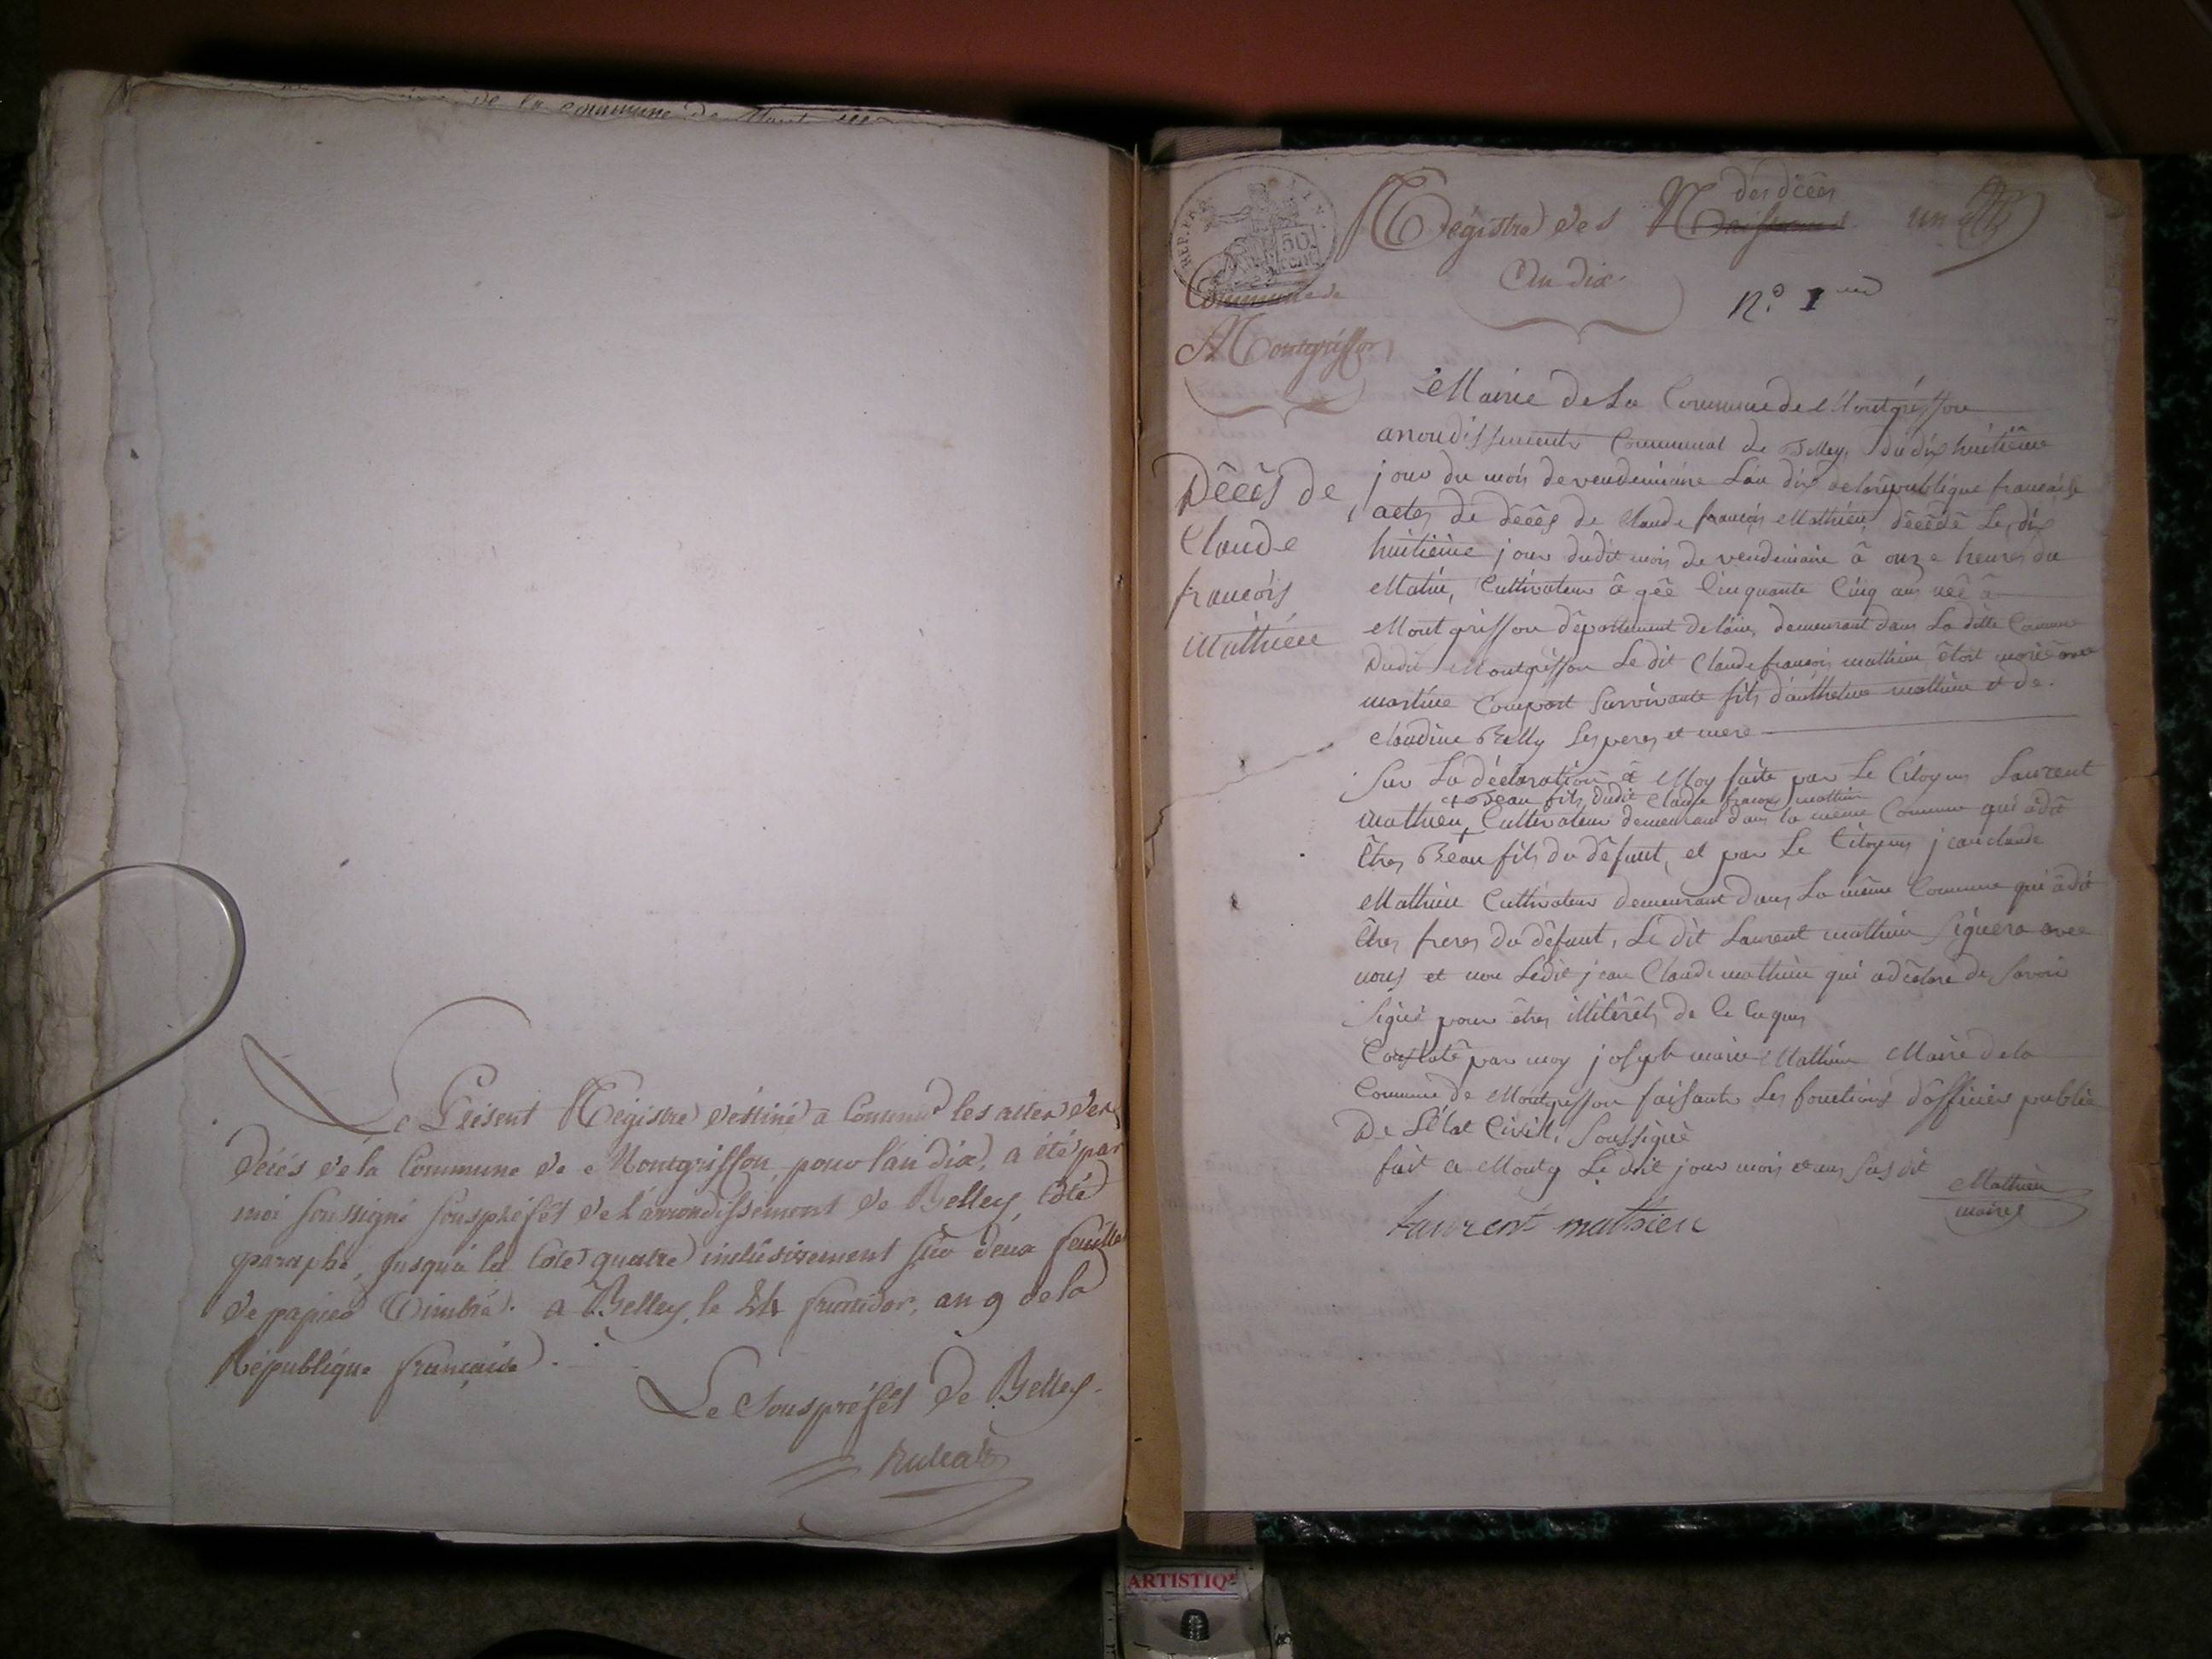 de la commune de
Le Présent Régistre destiné a Contenir les actes des
décés de la Commune de Montgriffon, pour l'an dix, a été par
moi soussigné souspréfét de l'arrondissement de Belley, côté
paraphé, jusqu'à la côte quatre inclusivement sur deux feuilles
de papier timbré. a Belley, le 24 fructidor, an 9 de la
République française.
Le Souspréfét de Belley.
REP. FRA.
50
CENT
Régistre des
des décés
Naissances
un
An dix
N.o 1
Commune de
Montgriffon
Mairie de La Commune de Montgriffon
arondissements Communal de Belley, du dix huitiême
jour du mois de vendemiaire L'an dix de la république française
actes de décês de Claude françois Mathieu, décêdê Le dix
huitième jour dudit mois de vendemiaire â onze heures du
Matin, Cultivateur âgêe Cinquante Cinq ans nêe â
Montgriffon département de l'ain, demeurant dans La ditte Commune
Dudit Montgriffon Le dit Claude françois mathieu êtoit mariê avec
martine Compart Survivante fils d'anthelme mathieu et de
Claudine Belly Les peres et mere
Décês de
Claude
françois
Mathieu
Sur La déclaration â Moy faite par Le Citoyen Laurent
+ Beau fils dudit Claude françois mathieu
Mathieu, Cultivateur demeurant dans la même Commune qui â dit
Êtres Beau fils du dêfunt, et par Le Citoyen jean claude
Mathieu Cultivateur demeurant dans La même Commune qui â dit
Êtres freres du dêfunt, Le dit Laurent mathieu Signera avec
nous et non Ledit jean Claude mathieu qui a dêclaré de Savoir
Signé pour êtres illitérêts de Ce
Constatê par moy joseph marie Mathieu Maire de la
Commune de Montgriffon faisants Les fonctions d'officier public
De L'Êtat Civil, Soussignê
fait a Montg Le dit jour mois et ans Sus dit
Mathieu
maire
Laurent mathieu
ARTISTIQ